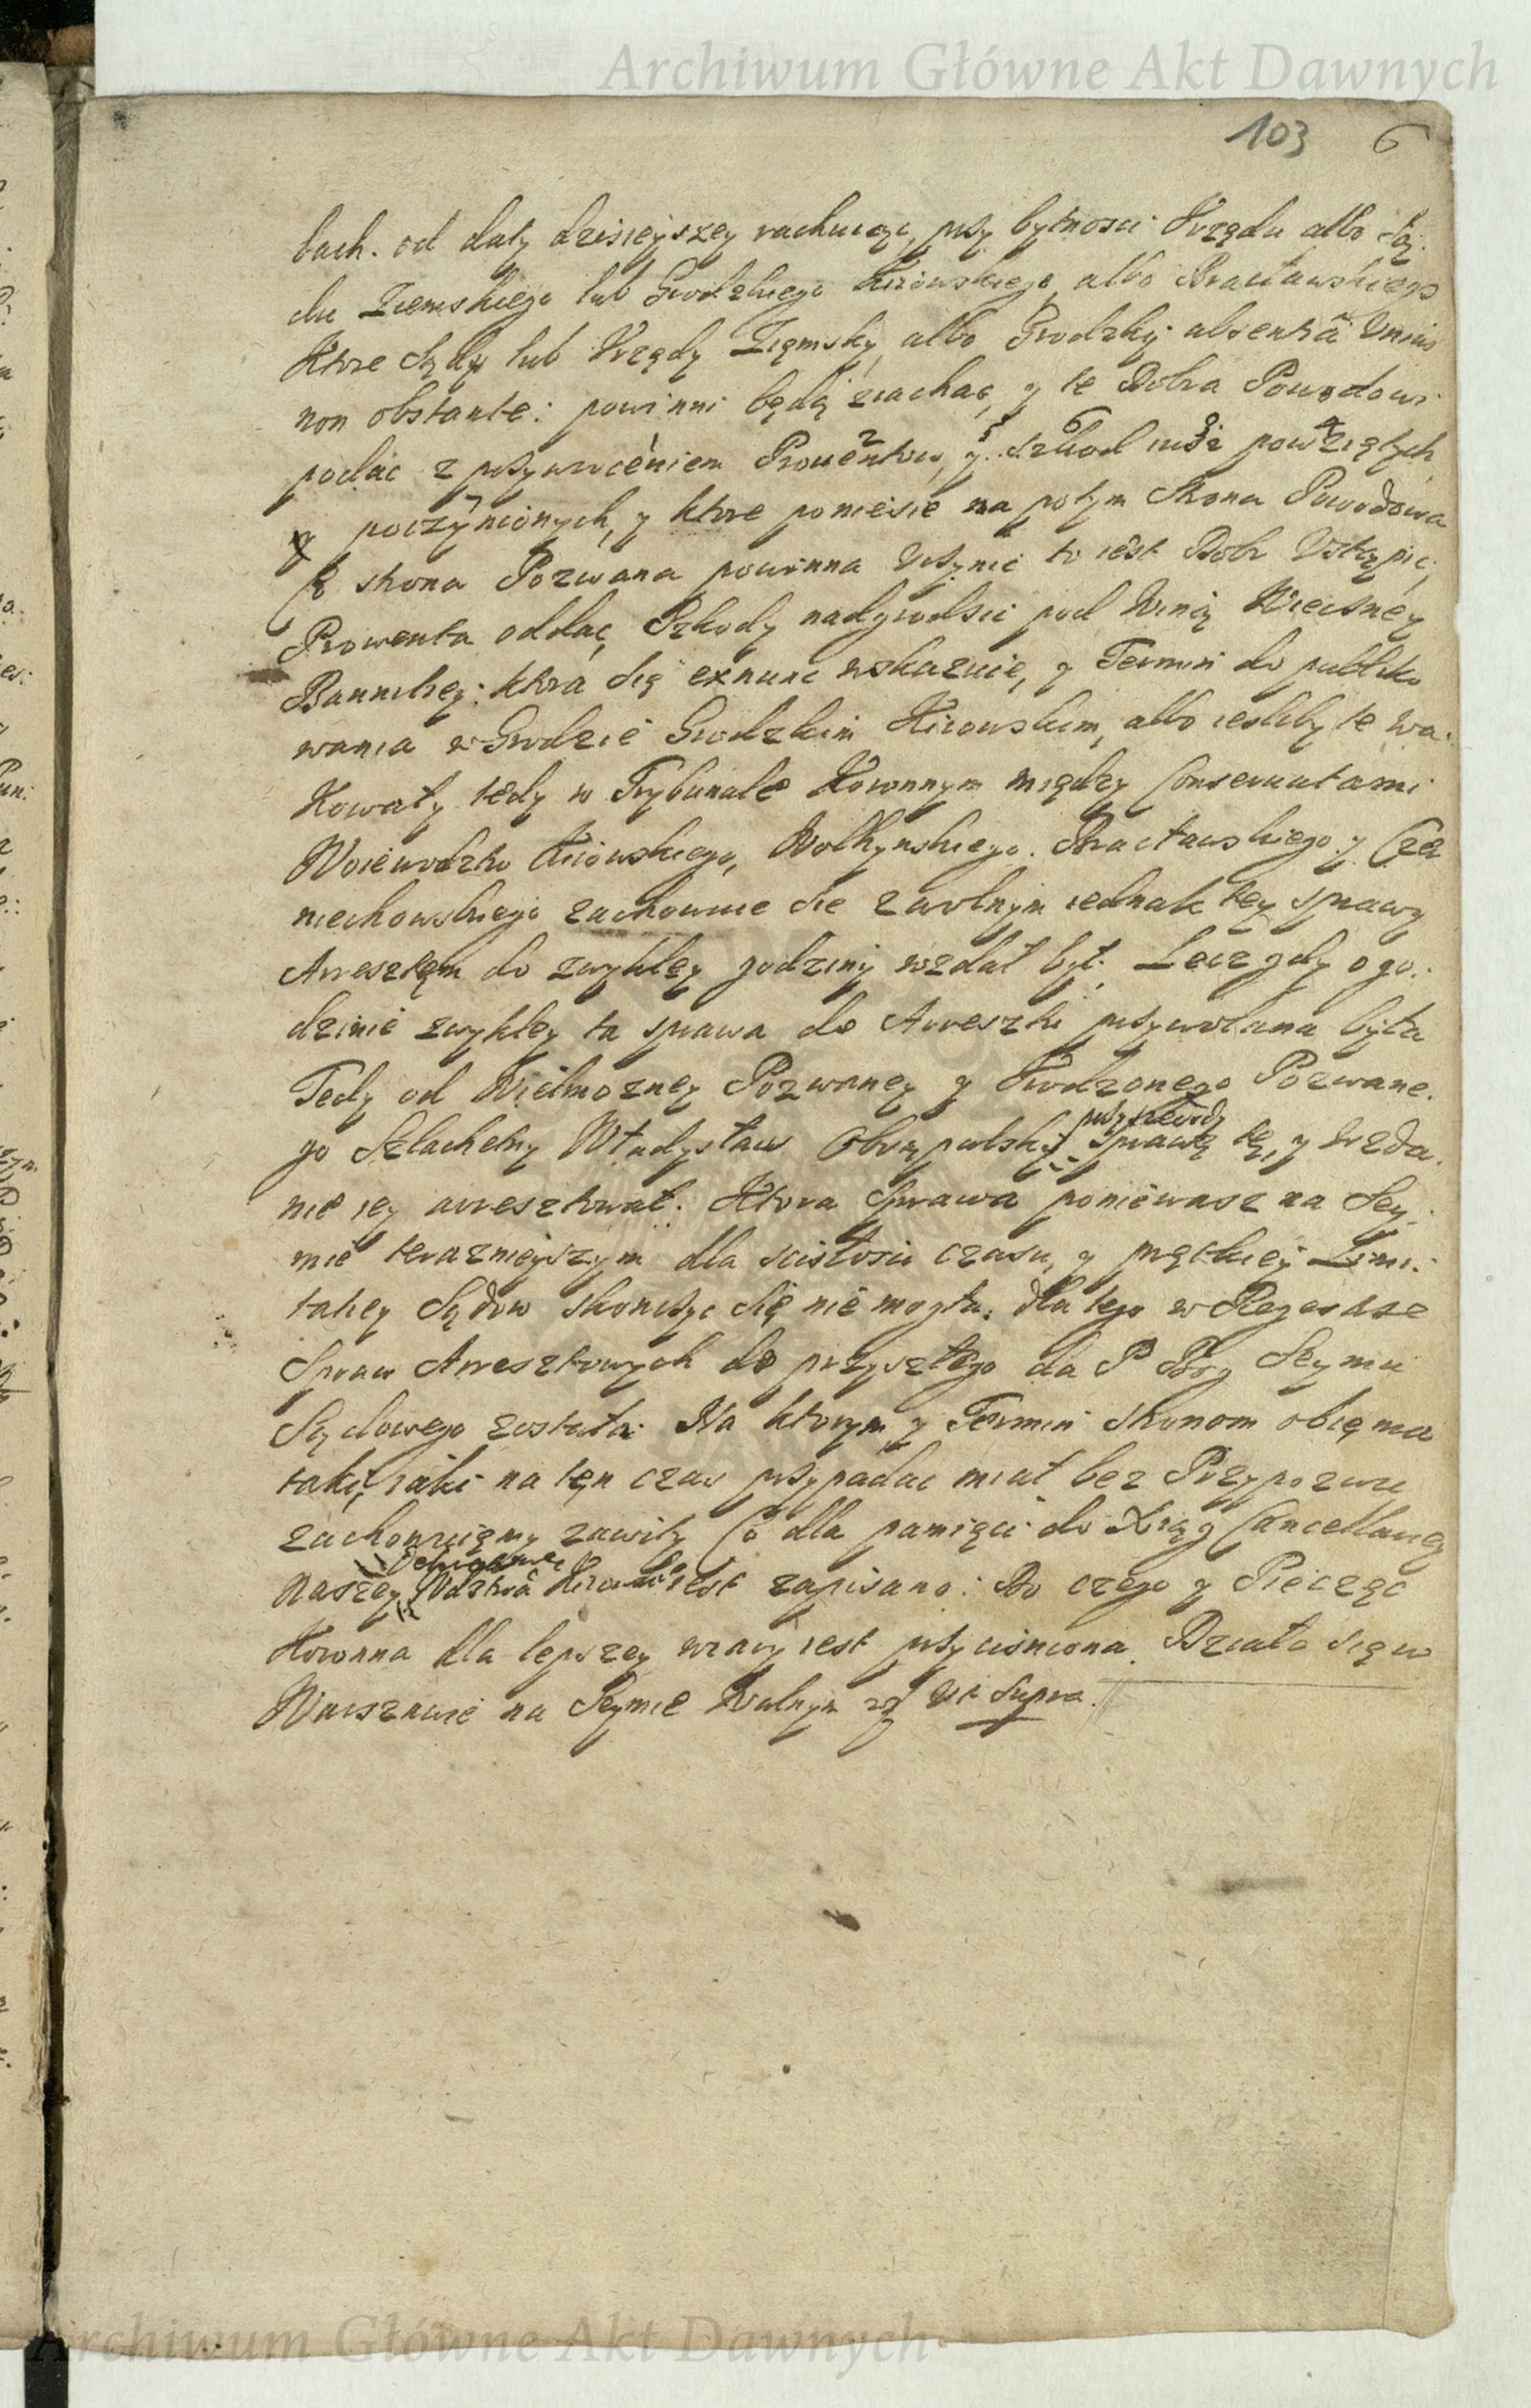 Archiwum Główne Akt Dawnych
103 6
bach. od daty dzisieyszey rachuiąc, przy bytnosci Vrzędu albo Są-
du Ziemskiego lub Grodzkiego Kiiowskiego, albo Bracławskiego
Ktore Sądy lub Vrzędy Ziemsky albo Grodzky absentia Vnius
non obstante: powinni będą ziachać, y te Dobra Powodowi
podac z przywroceniem Prouentow, y Szkod iuż powziętych
y poczynionych, y ktore poniesie na potym Strona Powodowa
Co strona Pozwana powinna Vczynic to iest Dobr Vstąpic,
Prowenta oddac, Szkody nadgrodzic pod Winą Wieczney
Banniciey: ktora się exnunc wskazuie, y Termin do publiko
wania w Grodzie Grodzkim Kiiowskim, albo iesliby te wa-
kowały tedy w Trybunale Koronnym między Conseruatami
Woiewodztw Kiiowskiego, Wołhynskiego. Bracławskiego. y Czer
niechowskiego zachowuie sie z wolnym iednak tey sprawy
Arresztem do zwykłey godziny wzdał był. Lecz gdy o go-
dzinie zwykłey ta sprawa do Arresztu przywołana była
Tedy od Wielmozney Pozwaney y Vrodzonego Pozwane-
przyrzeczoną
go Szlachetny Władysław Obrąpalsky sprawę tę, y wzda-
nie iey arresztował. Ktora Sprawa poniewasz na Sey-
mie teraznieyszym dla scisłosci czasu, y prętkiey Limi-
taciey Sądow skonczyc się nie mogła. dla tego w Regestrze
Spraw Arresztowych do przyszłego da P Bog Seymu
Sądowego została. Na ktorym y Termin stronom obiema
taki, iaki na ten czas przypadac miał bez Przypozwu
zachowuięmy zawity Co dla pamięci do Xiąg Cancellariey
Naszey Wdztwa Kiiow iest zapisano: Do czego y Pieczęc
Koronna dla lepszey wiary iest przycisniona. Działo się w
Warszawie na Seymie Walnym Vt Supra.
Archiwum Główne Akt Dawnych